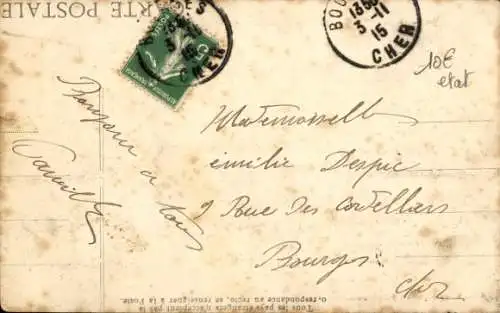 CARTE POSTALE
BOURGES
3-11
15
CHER
BOU
1350
3-11
15
CHER
10€
etat
Mademoiselle
émilie Despic
9 Rue des Cordeliers
Bourges
Cher
Bonjour a
tous
Camille
Tous les pays étrangers n'acceptent pas la
Correspondance au recto, se renseigner à la Poste.